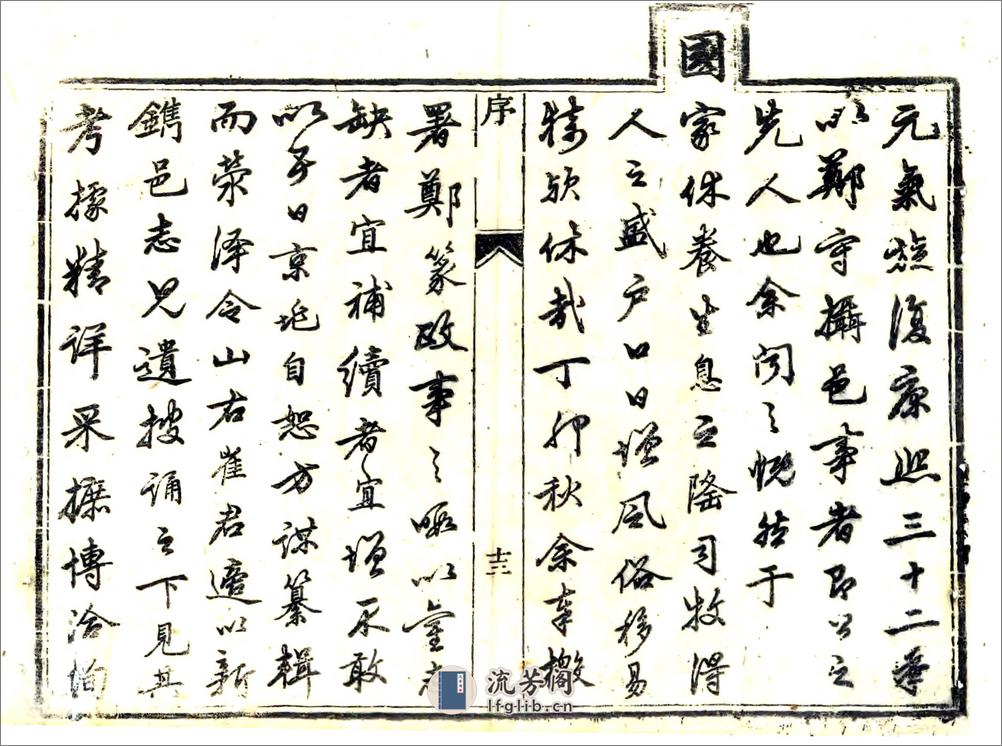 元氣旋復康熙三十二年
以鄭守攝邑事者即公之
先人也余聞之慨然于
國
家休養生息之隆司牧得
人之盛戶口日增風俗移易
猗歟休哉丁卯秋余奉檄
序
十三
署鄭篆政事之暇以童志
缺者宜補續者宜增不敢
以即日京兆自恕方謀纂輯
而滎澤令山右崔君適以新
鐫邑志見遺披誦之下見其
考據精詳采摭博洽
流芳閣
lfglib.cn